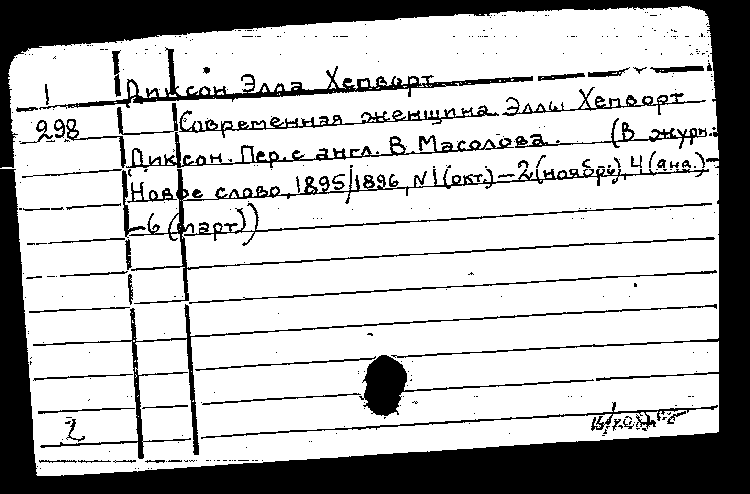 1 Диксон, Элла Хепворт
298 Современная женщина. Эллы Хепворт
Диксон. Пер. с англ. В. Масолова. (В журн.:
Новое слово, 1895/1896, №1(окт.)—2(ноябрь), 4(янв.)—
—6 (март))
2